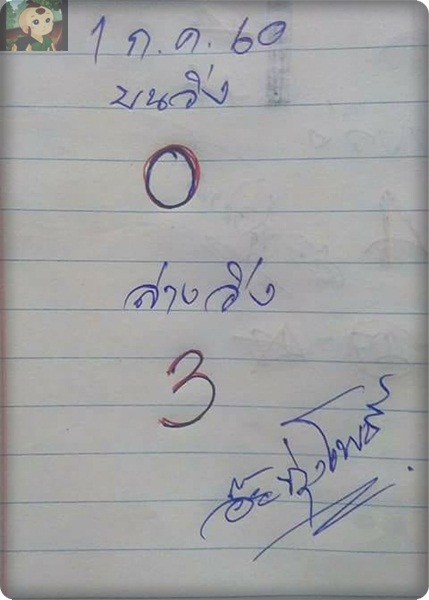 1 ก.ค. 60
บนวิ่ง
0
ล่างวิ่ง
3